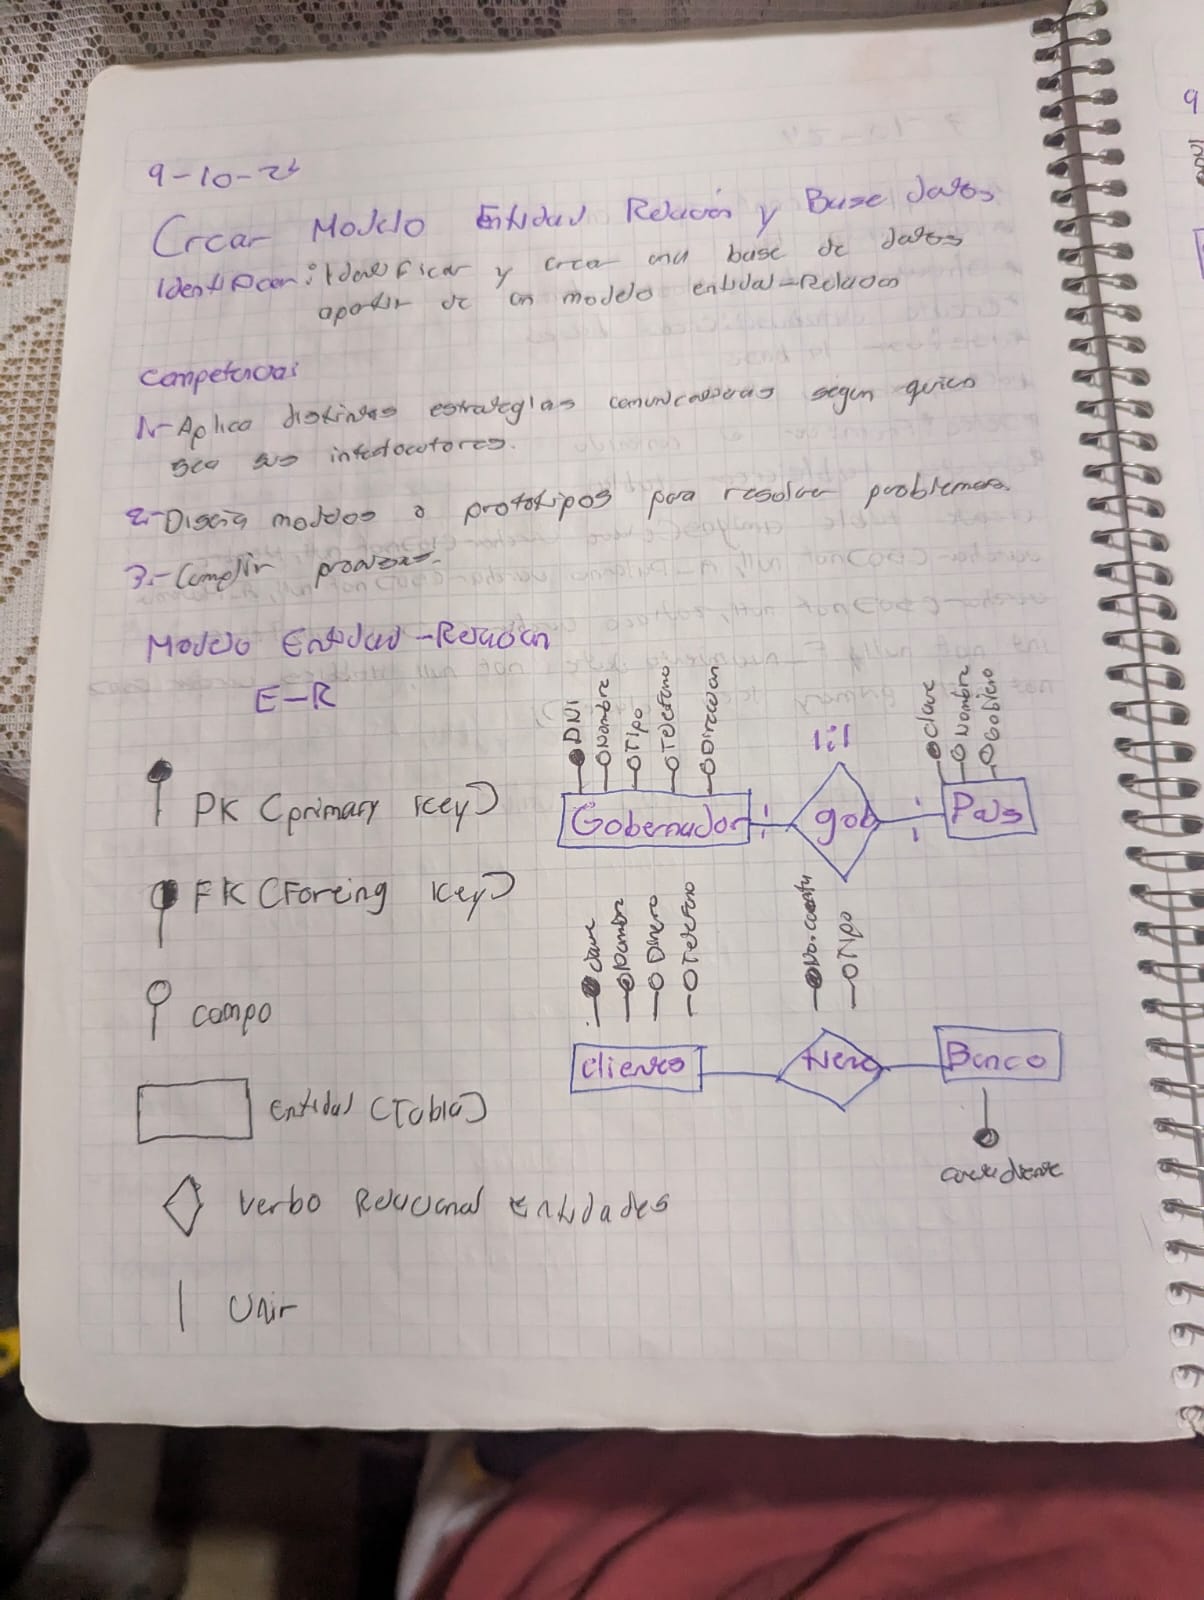 9-10-24
Crear Modelo Entidad Relación y Base datos
Identificar: Identificar y crear una base de datos
apartir de un modelo entidad-Relacion
competencias
1.-Aplica distintas estrategias comunicativas segun quien
sea sus interlocutores.
2.-Diseña modelos o prototipos para resolver problemas.
3.-Cumplir
Modelo Entidad-Relacion
E-R
PK (primary key)
FK (Foreing key)
campo
Entidad (Tabla)
Verbo Relacional entidades
Unir
DNI
Nombre
Tipo
Telefono
Direccion
1:1
clave
Nombre
Gobierno
Gobernador
1
gob
1
Pais
clave
Nombre
Dinero
Telefono
No.cuenta
Tipo
clientes
Banco